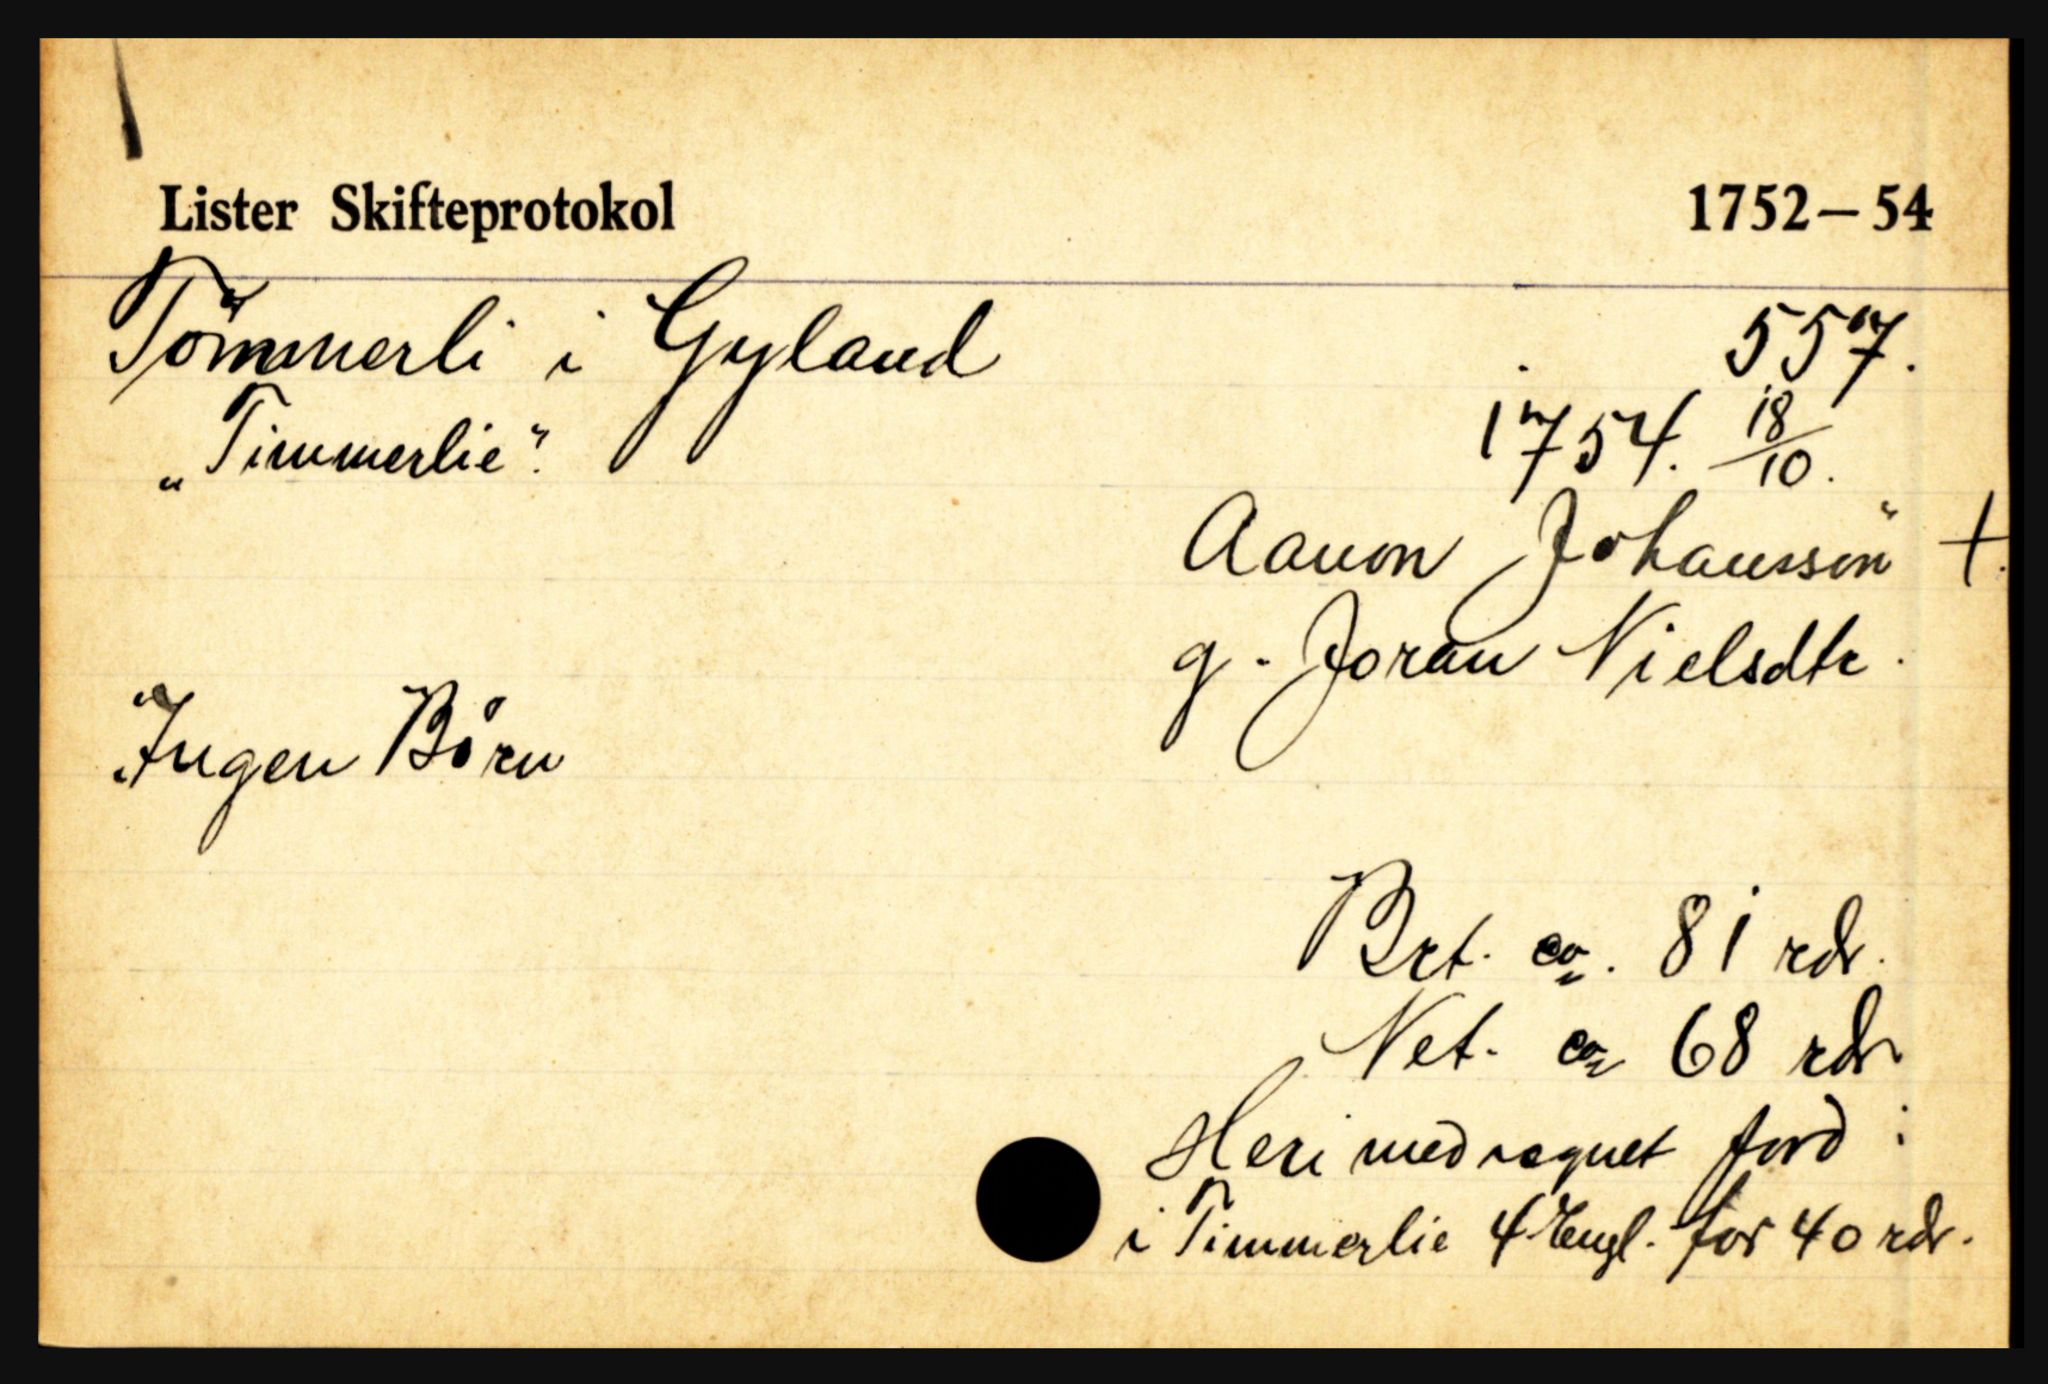 Lister Skifteprotokol 1752-54
Tømmerli i Gyland 557.
"Timmerlie". 1754. 18/10.
Aanon Johansson +
g. Joran Nielsdtr.
Ingen Børn
Brt. ca. 81 rdr.
Net. ca 68 rdr
Heri medregnet jord:
i Timmerlie 4 Engl. for 40 rdr.